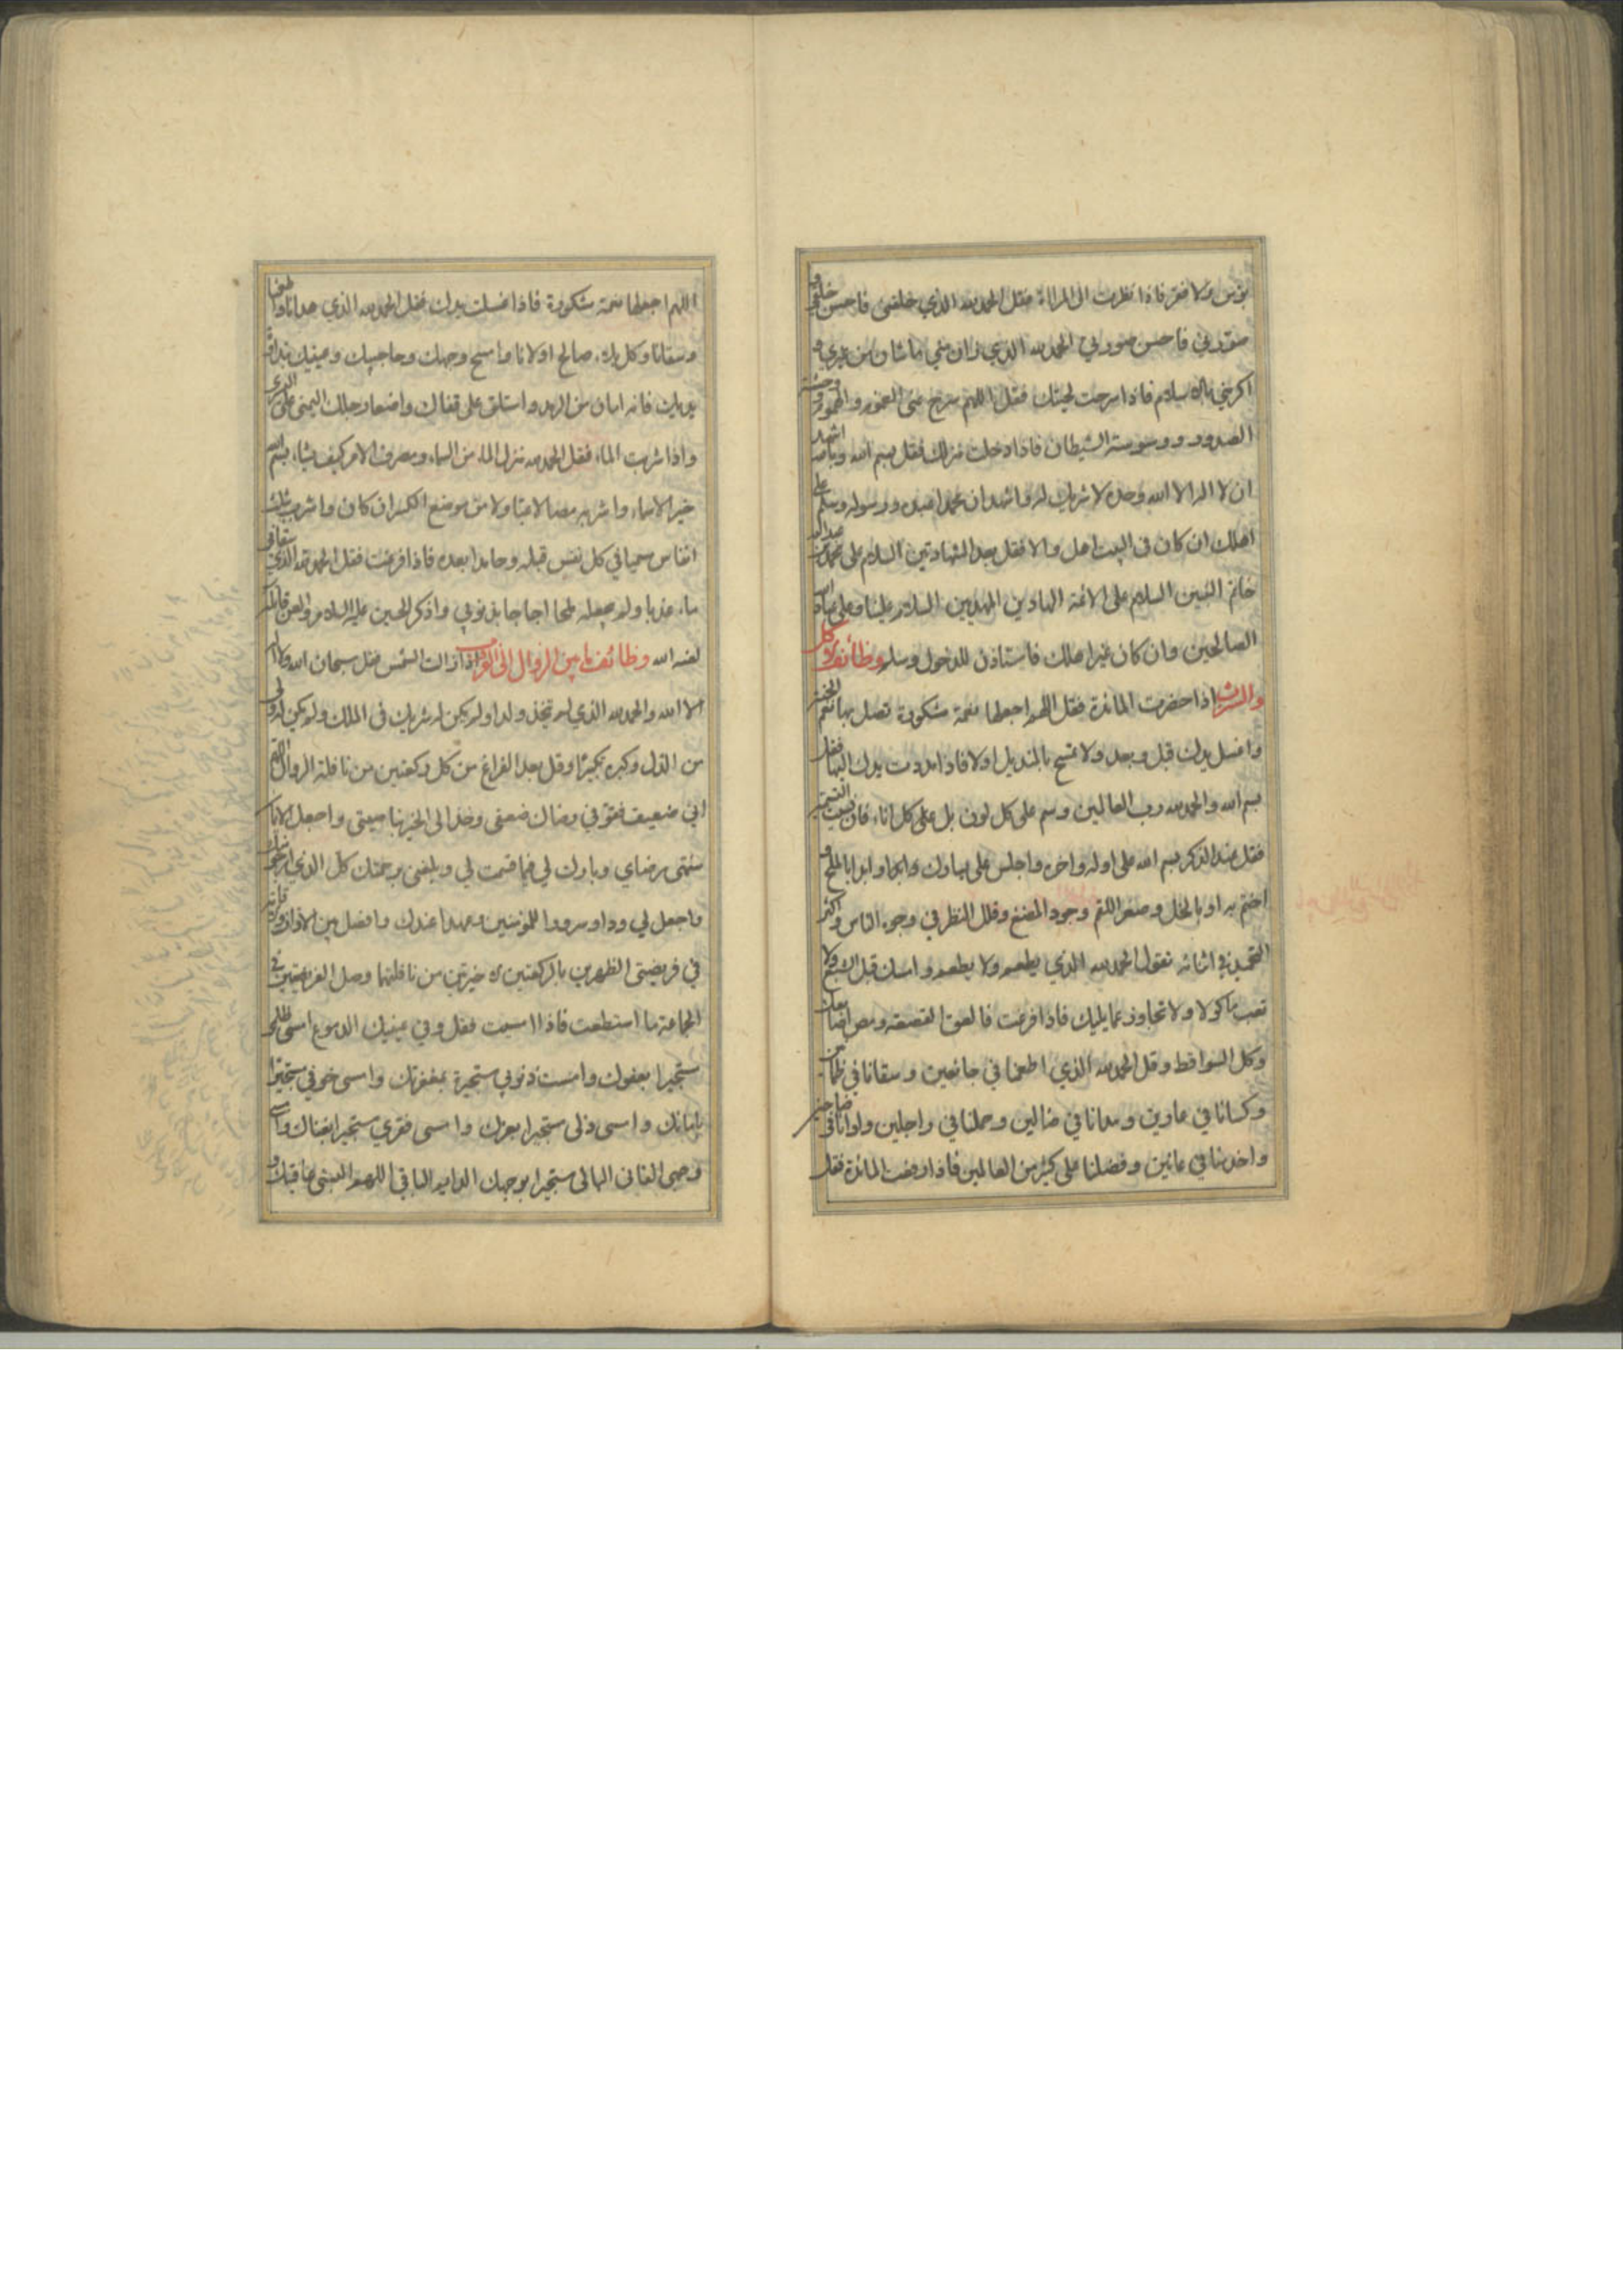 بؤس ولا فقر فاذا نظرت الى المرااة فقل الحمد لله الذي خلقني فاحسن خلقي و
صورني فاحسن صورتي الحمد لله الذي زان مني ما شان من غيري و
اكرمني بالاسلام فاذا سرحت لحيتك فقل اللهم سرح عني الغموم والهموم ووحشة
الصدور ووسوسة الشيطان فاذا دخلت منزلك فقل بسم الله وبالله اشهد
ان لا اله الا الله وحده لا شريك له واشهد ان محمدا عبده ورسوله وسلم على
اهلك ان كان في البيت اهل والا فقل بعد الشهادتين السلام على محمد بن عبد الله
خاتم النبيين السلام على الائمة الهادين المهديين السلام علينا وعلى عباد الله
الصالحين وان كان غير اهلك فاستاذن للدخول وسلم وظائف الاكل
والشرب اذا حضرت المائدة فقل اللهم اجعلها نعمة مشكورة تصل بها نعم الجنة
واغسل يدك قبل وبعد ولا تمسح بالمنديل اولا فاذا مددت يدك اليها فقل
بسم الله والحمد لله رب العالمين وسم على كل لون بل على كل اناء فان نسيت التسمية
فقل عند الذكر بسم الله على اوله واخره واجلس على يسارك وابدا بالملح و
اختم به او بالخل وصغر اللقم وجود المضغ وقلل النظر في وجوه الناس واكثر
التحميد في اثنائه تقول الحمد لله الذي يطعم ولا يطعم وامسك قبل الشبع ولا
تعب ماكولا ولا تجاوز عما يليك فاذا فرغت فالعق القصعة ومص اصابعك
وكل السواقط وقل الحمد لله الذي اطعمنا في جائعين وسقانا في ظمآنين
وكسانا في عارين وهدانا في ضالين وحملنا في راجلين واوانا في ضاحين
واخدمنا في عانين وفضلنا على كثير من العالمين فاذا رفعت المائدة فقل
اللهم اجعلها نعمة مشكورة فاذا غسلت يدك فقل الحمد لله الذي هدانا واطعمنا
وسقانا وكل بلاء صالح اولانا وامسح وجهك وحاجبيك وعينيك بنداوة
يديك فانه امان من الرمد واستلق على قفاك واضعا رجلك اليمنى على اليسرى
واذا شربت الماء فقل الحمد لله منزل الماء من السماء ومصرف الامر كيف يشاء بسم الله
خير الاسماء واشربه مصا لا عبا ولا من موضع الكسر ان كان واشرب بثلث
انفاس سميا في كل نفس قبله وحامدا بعده فاذا فرغت فقل الحمد لله الذي سقاني
ماء عذبا ولم يجعله ملحا اجاجا بذنوبي واذكر الحسين عليه السلام والعن قاتله
لعنه الله وظائف ما بين الزوال الى الغروب اذا زالت الشمس فقل سبحان الله ولا اله
الا الله والحمد لله الذي لم يتخذ ولدا ولم يكن له شريك في الملك ولم يكن له ولي
من الذل وكبره تكبيرا وقل بعد الفراغ من كل ركعتين من نافلة الزوال اللهم
اني ضعيف فقو في رضاك ضعفي وخذ الى الخير بناصيتي واجعل الايمان
منتهى رضاي وبارك لي فيما قسمت لي وبلغني برحمتك كل الذي ارجو منك
واجعل لي ودا وسرورا للمؤمنين وعهدا عندك وافصل بين الاذان والاقامة
في فريضتي الظهرين بالركعتين الاخيرتين من نافلتهما وصل الفريضتين في
الجماعة ما استطعت فاذا امسيت فقل وفي عينيك الدموع امسى ظلمي
مستجيرا بعفوك وامست ذنوبي مستجيرة بمغفرتك وامسى خوفي مستجيرا
بامانك وامسى ذلي مستجيرا بعزك وامسى فقري مستجيرا بغناك وامسى
وجهي الفاني البالي مستجيرا بوجهك الدايم الباقي اللهم البسني عافيتك و